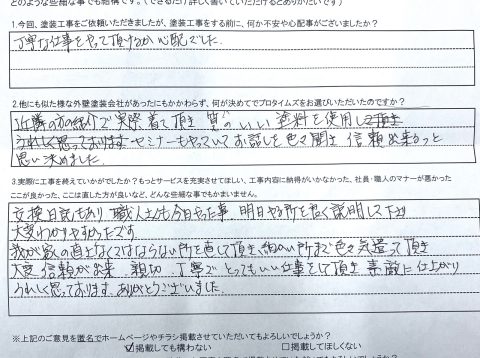 どのような些細な事でも結構です。（できるだけ詳しく書いていただけるとありがたいです）
1.今回、塗装工事をご依頼いただきましたが、塗装工事をする前に、何か不安や心配事がございましたか?
丁寧な仕事をやって頂けるか心配でした.
2.他にも似た様な外壁塗装会社があったにもかかわらず、何が決めてでプロタイムズをお選びいただいたのですか?
近隣の方の紹介で実際着て頂き 質のいい 塗料を使用して頂き
うれしく思っております セミナーもやっていてお話しを色々聞き 信頼出来ると
思い決めました.
3.実際に工事を終えていかがでしたか?もっとサービスを充実させてほしい、工事内容に納得がいかなかった、社員・職人のマナーが悪かった
ここが良かった、ここは直した方が良いなど、どんな些細な事でもかまいません。
交換日記もあり 職人さんも今日やった事、明日やる所を良く説明して下さり
大変わかりやすかったです
我が家の直さなくてはならない所を直して頂き、細かい所まで色々気遣って頂き
大変 信頼が出来 親切 丁寧で とってもいい仕事をして頂き 素敵に仕上がり
うれしく思っております. ありがとうございました.
※上記のご意見を匿名でホームページやチラシ掲載させていただいてもよろしいでしょうか?
☑掲載しても構わない □掲載してほしくない